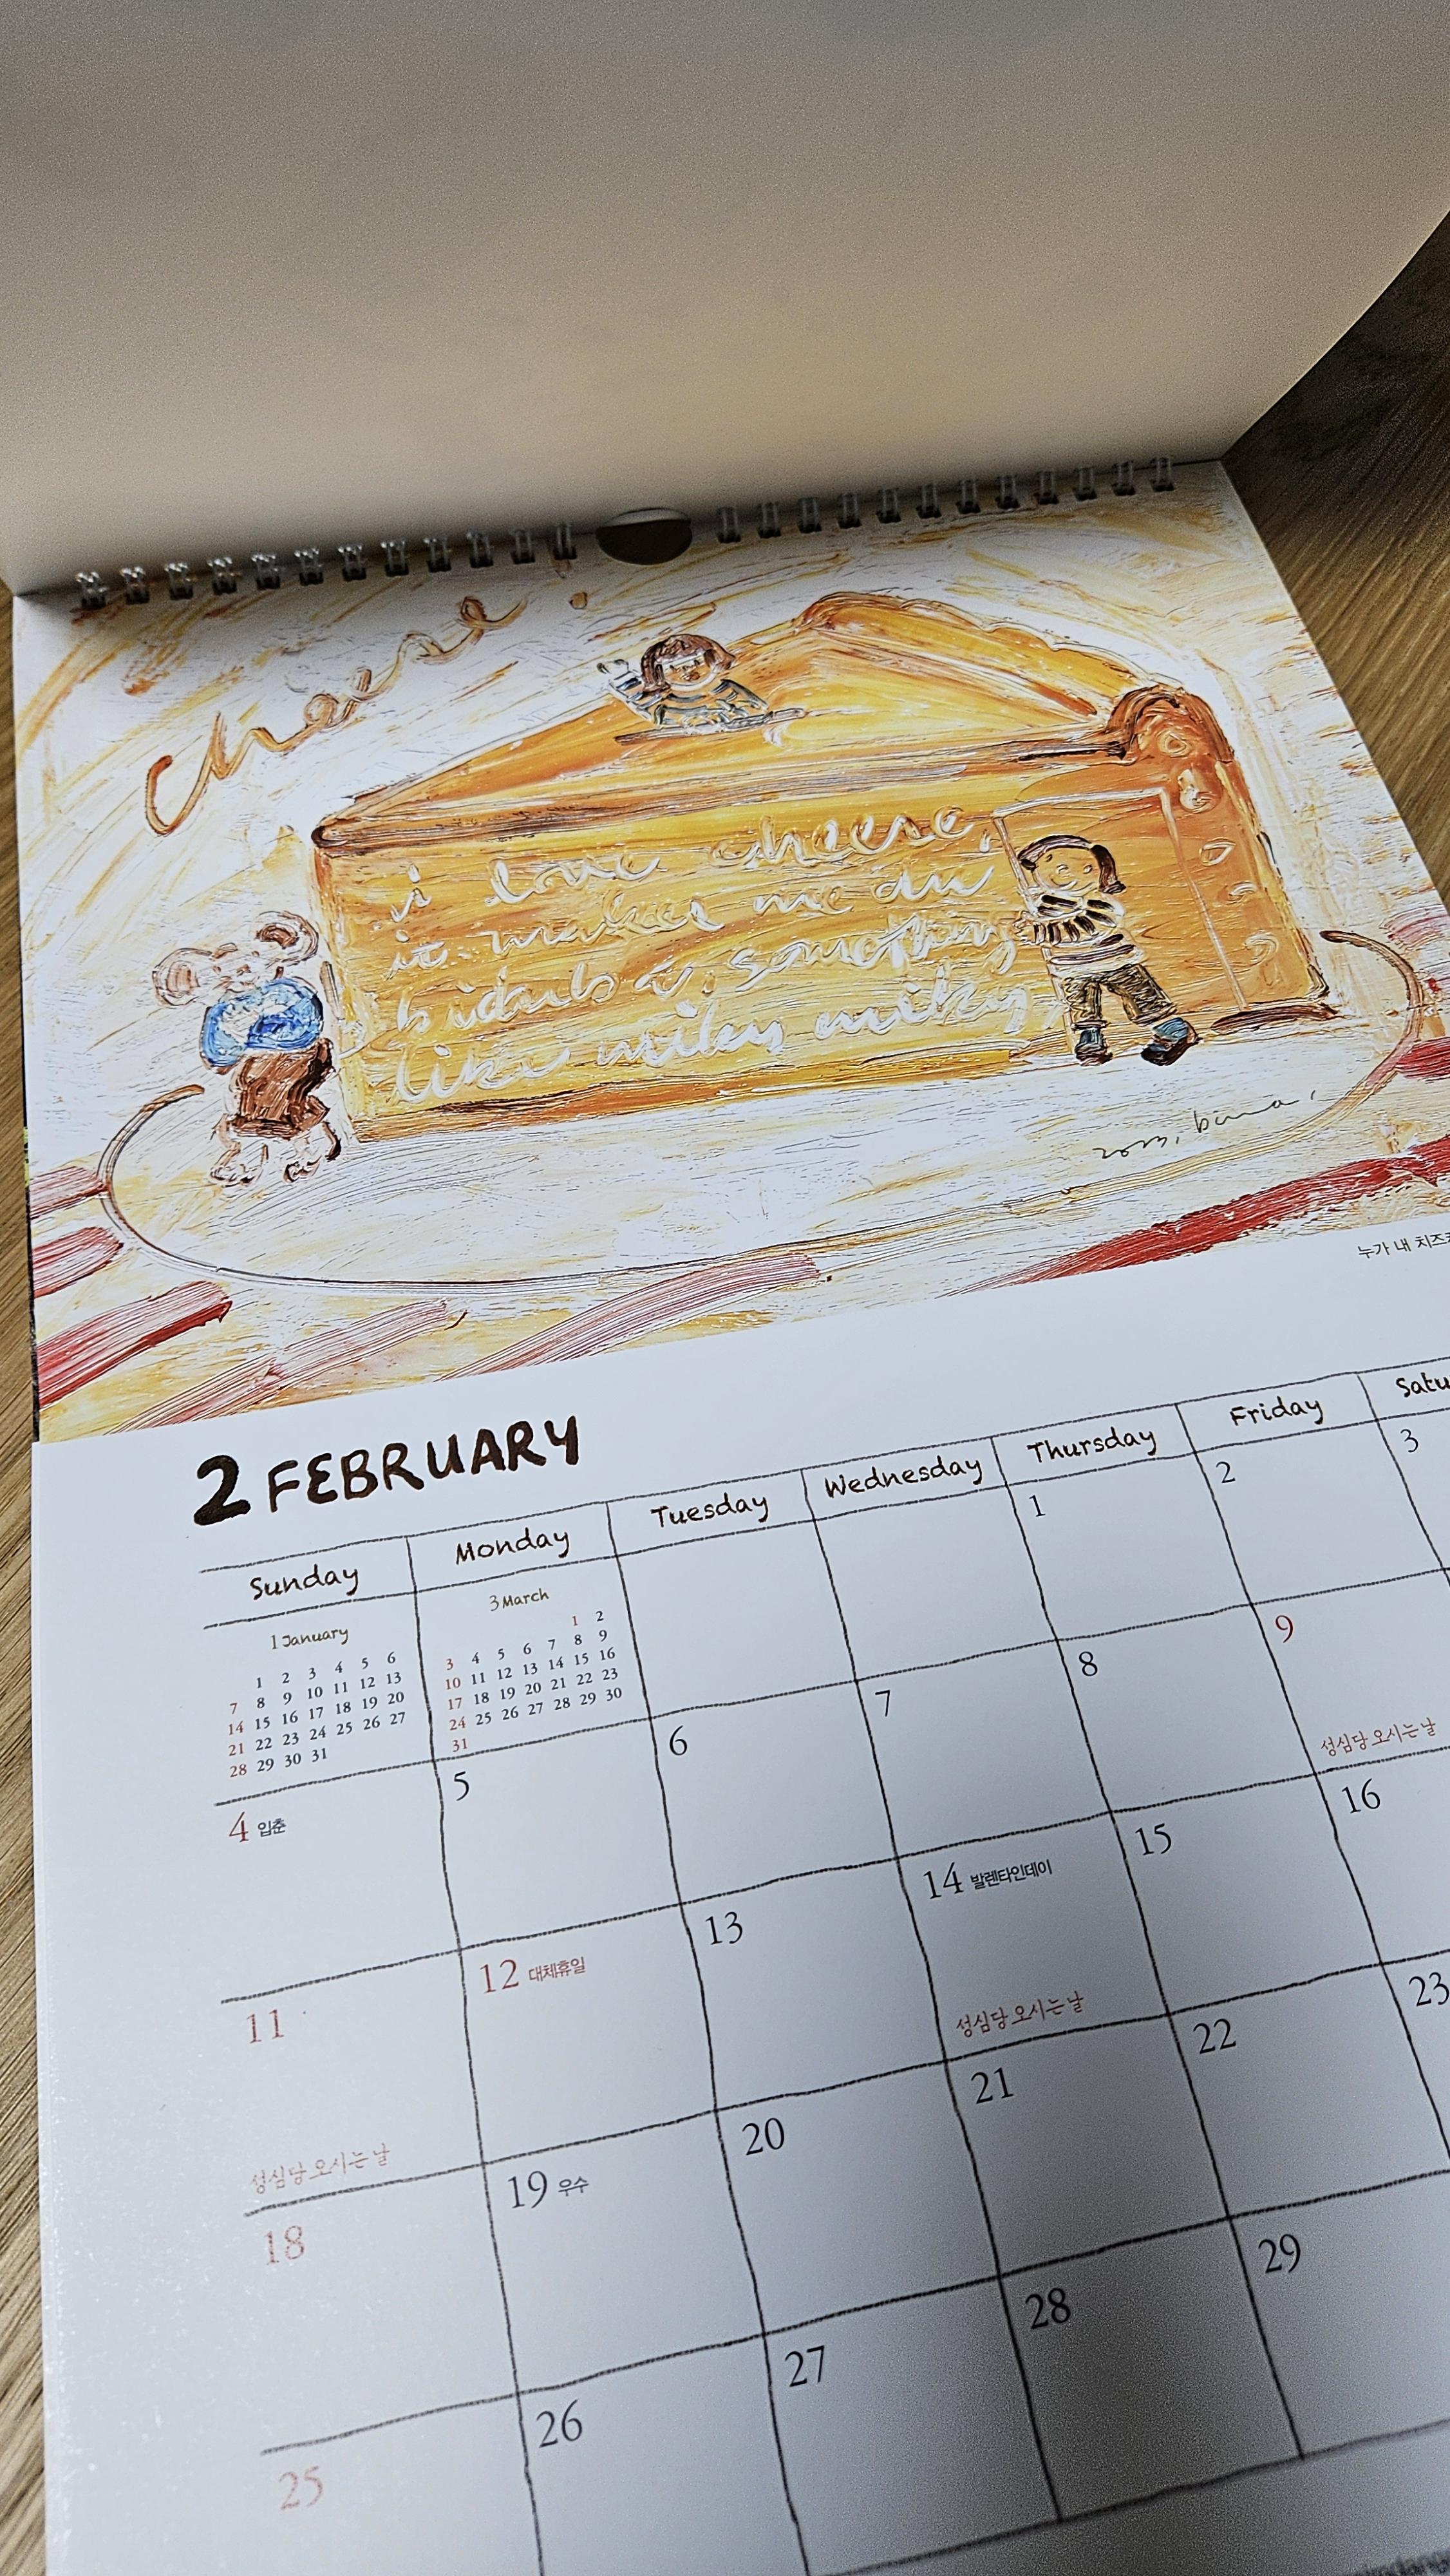 cheese!
i love cheese,
it makes me
something
like milky milky
누가 내 치즈
2 FEBRUARY
Sunday Monday Tuesday Wednesday Thursday Friday
1 January
1 2 3 4 5 6
7 8 9 10 11 12 13
14 15 16 17 18 19 20
21 22 23 24 25 26 27
28 29 30 31
3 March
1 2
3 4 5 6 7 8 9
10 11 12 13 14 15 16
17 18 19 20 21 22 23
24 25 26 27 28 29 30
31
1 2 3
4 입춘 5 6 7 8 9
성심당 오시는 날
11 12 대체휴일 13 14 발렌타인데이 15 16
성심당 오시는 날
성심당 오시는 날
18 19 우수 20 21 22 23
25 26 27 28 29